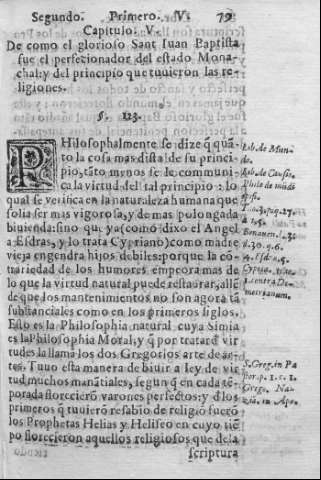 Segundo. Primero. V. 79
Capitulo. V.
De como el glorioso Sant Iuan Baptista
fue el perfetionador del estado Mona-
chal: y del principio que tuuieron las re-
ligiones.
§. 123.
PHilosophalmente se dize q̃ quã-
to la cosa mas dista de su princi-
pio, tãto menos se le communi-
ca la virtud del tal principio: lo
qual se verifica en la naturaleza humana que
solia ser mas vigorosa, y de mas polongada
biuienda: sino que ya (como dixo el Angel
a Esdras, y lo trata Cypriano) como madre
vieja engendra hijos debiles: porque la cõ-
trariedad de los humores empeora mas de
lo que la virtud natural puede restaurar, allẽ
de que los mantenimientos no son agora tã
substanciales como en los primeros siglos.
Esto es la Philosophia natural cuya Simia
es la Philosophia Moral, y q̃ por tratar de vir
tudes la llama los dos Gregorios arte de ar-
tes. Tuuo esta manera de biuir a ley de vir
tud muchos manãtiales, segun q̃ en cada tẽ-
porada florecierõ varones perfectos: y d̃ los
primeros q̃ tuuierõ resabio de religiõ fuerõ
los Prophetas Helias y Heliseo en cuyo tiẽ
po florecieron aquellos religiosos que de la
scriptura
Lib. de Mun-
do.
Lib. de Causis.
4. Esdr. 5.
Cypria.
contra De-
metrianum.
S. Greg. in Pa
stor. p. 1. c. 1.
Grego. Na-
ziã. in Apo.